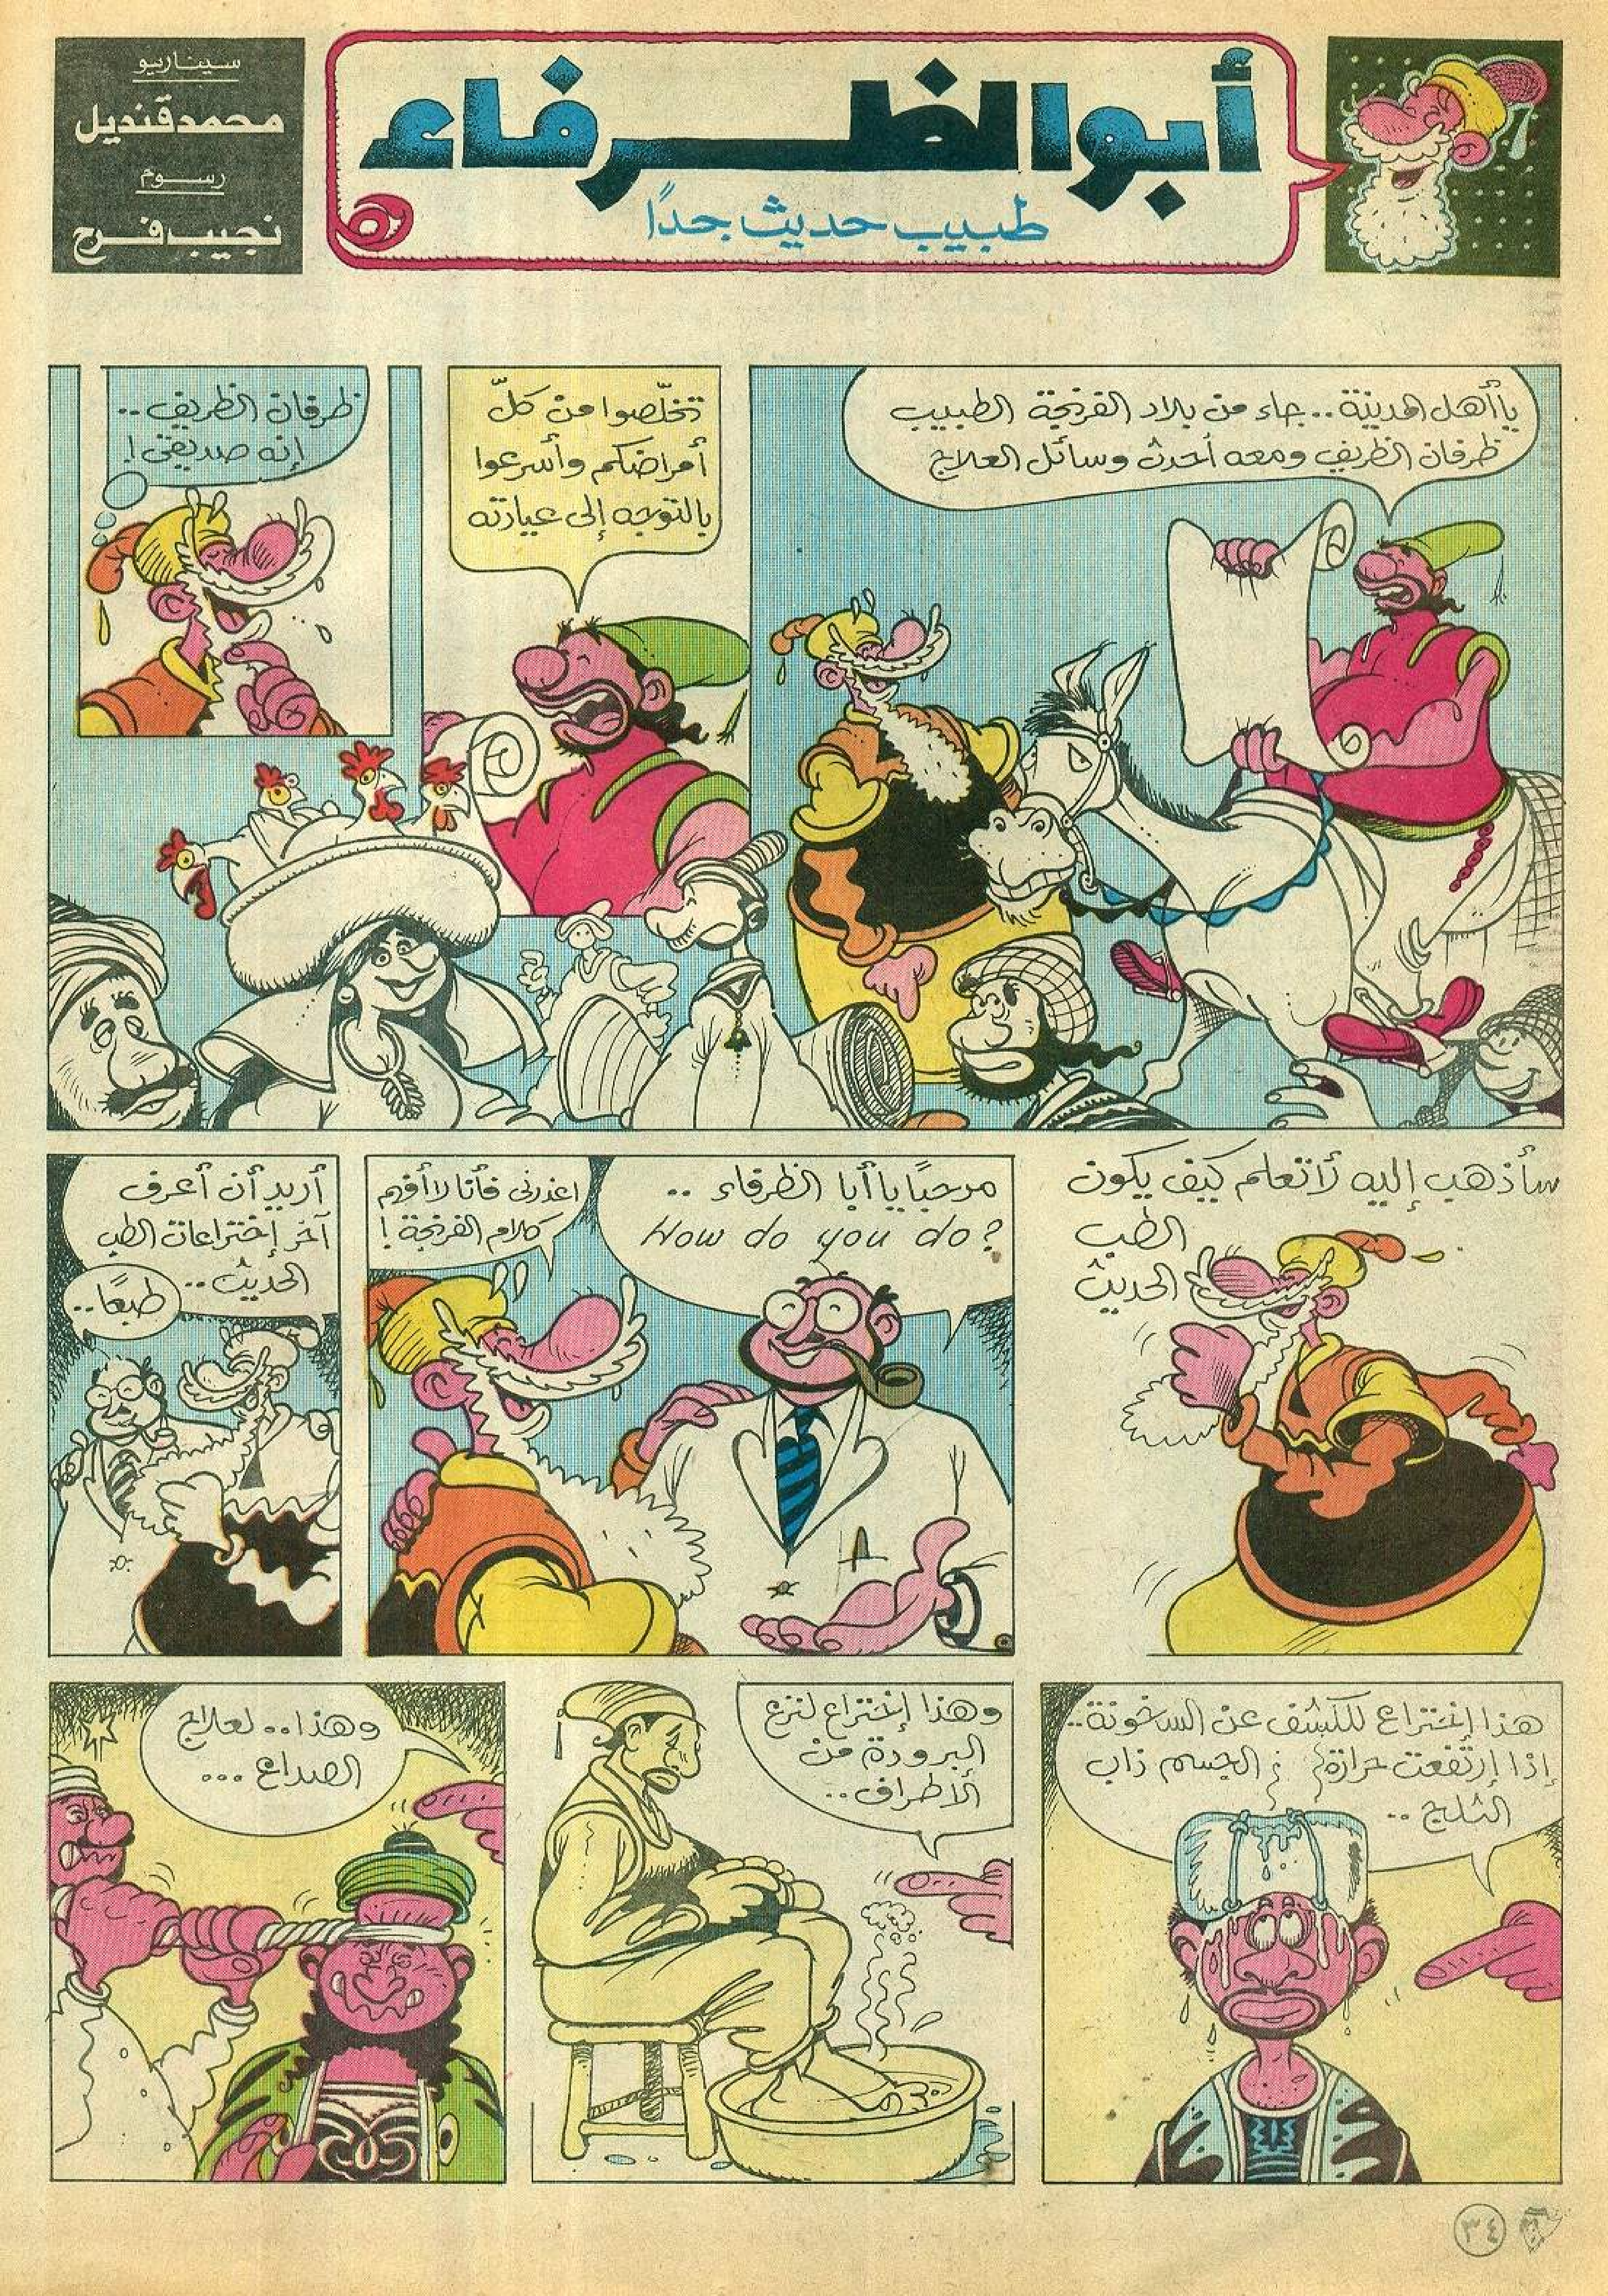 سيناريو
محمد قنديل
رسوم
نجيب فرج
أبو الظرفاء
طبيب حديث جدًا
يا أهل المدينة .. جاء من بلاد الفرنجة الطبيب
ظرفان الظريف ومعه أحدث وسائل العلاج
تخلّصوا من كلّ
أمراضكم وأسرعوا
بالتوجه إلى عيادته
ظرفان الظريف ..
إنه صديقى !
سأذهب إليه لأتعلم كيف يكون
الطب
الحديث
مرحبًا يا أبا الظرفاء ..
How do you do?
اعذرنى فأنا لا أفهم
كلام الفرنجة !
أريد أن أعرف
آخر إختراعات الطب
الحديث ..
طبعًا ..
هذا إختراع للكشف عن السخونة ..
إذا إرتفعت حرارة الجسم ذاب
الثلج ..
وهذا إختراع لنزع
البرودة من
الأطراف ..
وهذا .. لعلاج
الصداع ...
٣٤